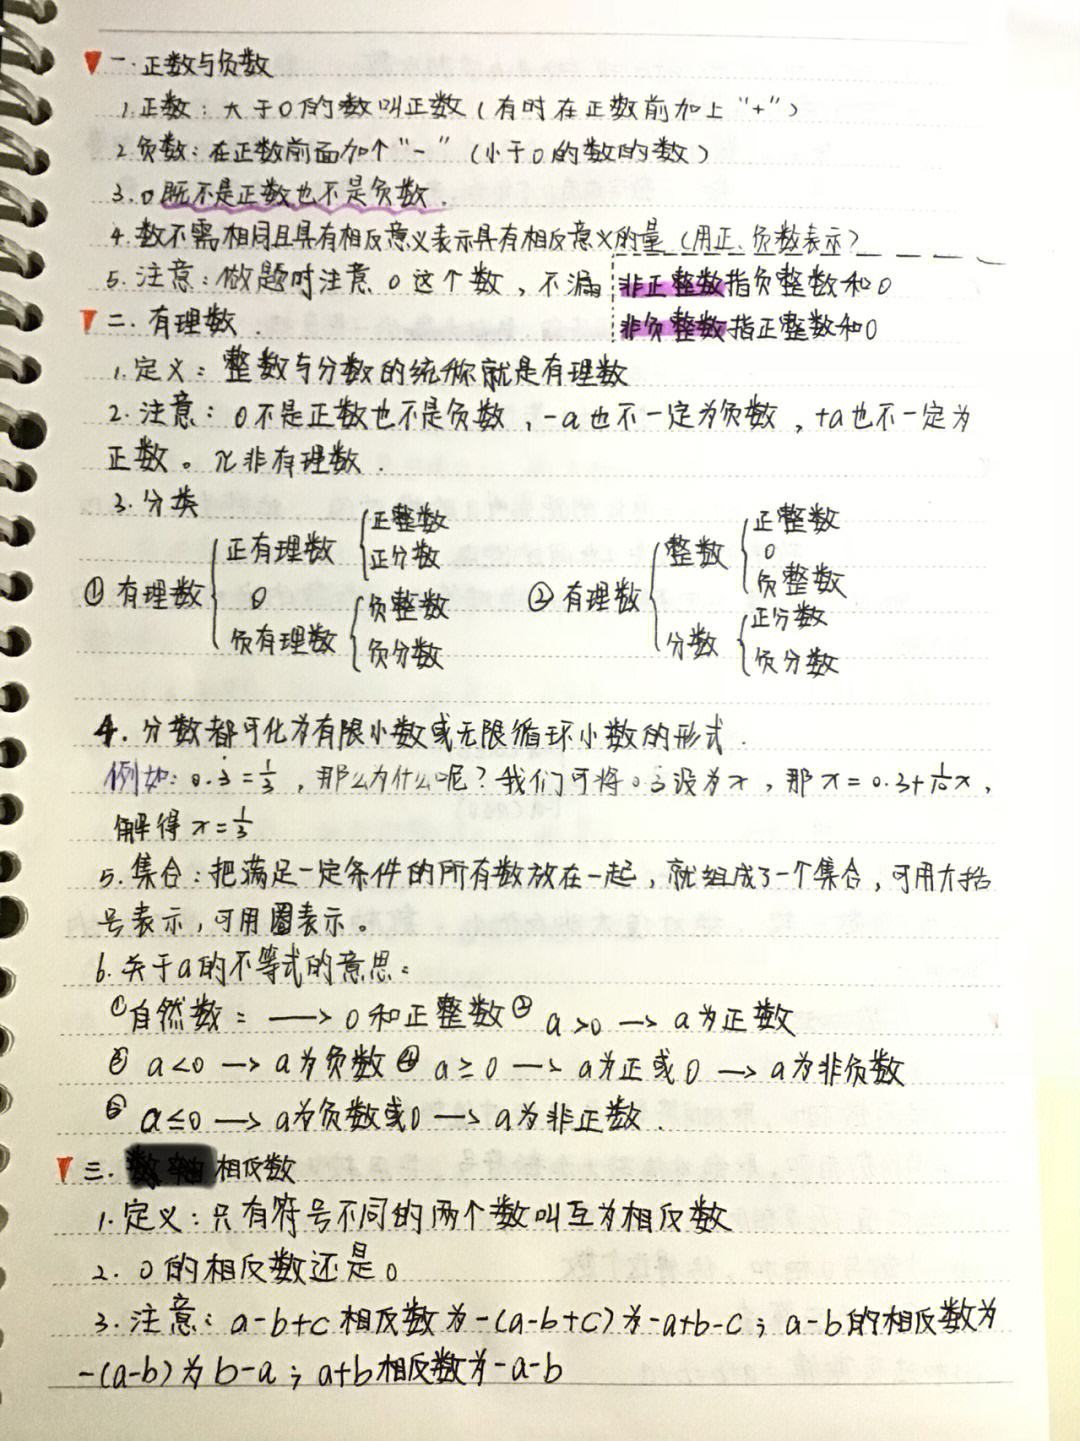 一.正数与负数
1.正数:大于0的数叫正数(有时在正数前加上“+”)
2.负数:在正数前面加个“-”(小于0的数的数)
3.0既不是正数也不是负数.
4.数不需相同且具有相反意义表示具有相反意义的量(用正、负数表示)
5.注意:做题时注意0这个数,不漏。
非正整数指负整数和0
非负整数指正整数和0
二.有理数.
1.定义:整数与分数的统称就是有理数
2.注意:0不是正数也不是负数,-a也不一定为负数,+a也不一定为
正数。π非有理数.
3.分类
①有理数{正有理数{正整数 正分数 0 负有理数{负整数 负分数
②有理数{整数{正整数 0 负整数 分数{正分数 负分数
4.分数都可化为有限小数或无限循环小数的形式.
例如:0.3̇=1/3,那么为什么呢?我们可将0.3̇设为x,那x=0.3+1/10x,
解得x=1/3
5.集合:把满足一定条件的所有数放在一起,就组成了一个集合,可用大括
号表示,可用圈表示。
6.关于a的不等式的意思:
①自然数:→0和正整数②a>0→a为正数
③a<0→a为负数④a≥0→a为正或0→a为非负数
⑤a≤0→a为负数或0→a为非正数.
三.相反数
1.定义:只有符号不同的两个数叫互为相反数
2.0的相反数还是0
3.注意:a-b+c相反数为-(a-b+c)为-a+b-c;a-b的相反数为
-(a-b)为b-a;a+b相反数为-a-b